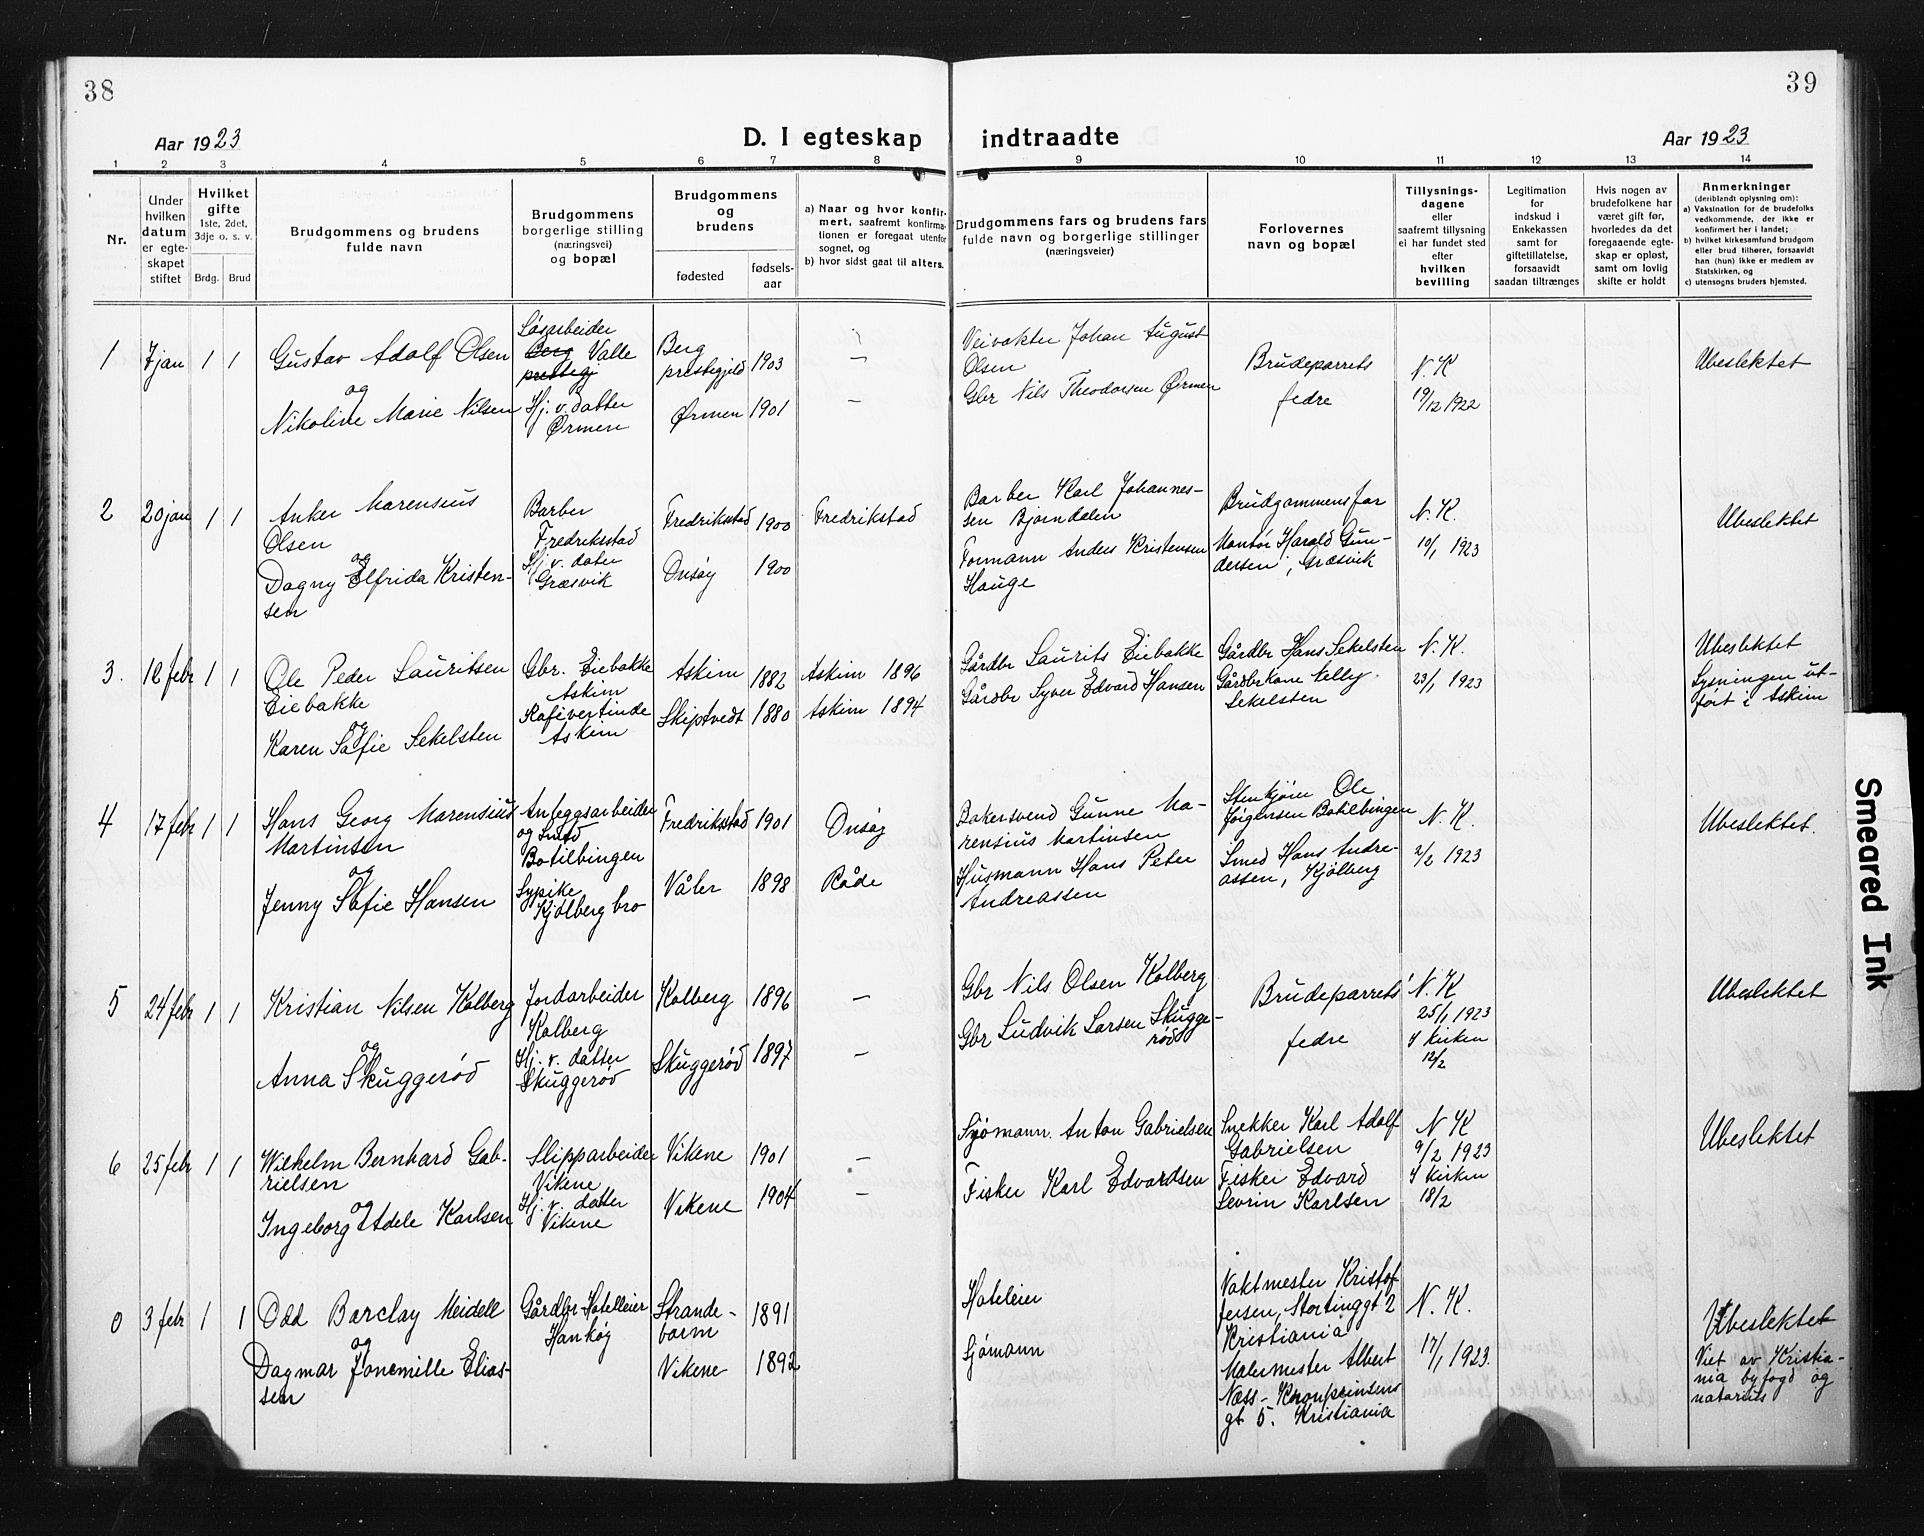 38
39
Aar 1923
D. I egteskap indtraadte
Aar 1923
1 2 3 4 5 6 7 8 9 10 11 12 13 14
Nr.
Under
hvilken
datum
er egte-
skapet
stiftet
Hvilket
gifte
1ste, 2det,
3dje o. s. v.
Brdg. Brud
Brudgommens og brudens
fulde navn
Brudgommens
borgerlige stilling
(næringsvei)
og bopæl
Brudgommens
og
brudens
fødested
fødsels-
aar
a) Naar og hvor konfir-
mert, saafremt konfirma-
tionen er foregaat utenfor
sognet, og
b) hvor sidst gaat til alters.
Brudgommens fars og brudens fars
fulde navn og borgerlige stillinger
(næringsveier)
Forlovernes
navn og bopæl
Tillysnings-
dagene
eller
saafremt tillysning
ei har fundet sted
efter
hvilken
bevilling
Legitimation
for
indskud i
Enkekassen
samt for
giftetillatelse,
forsaavidt
saadan tiltrænges
Hvis nogen av
brudefolkene har
været gift før,
hvorledes da det
foregaaende egte-
skap er opløst,
samt om lovlig
skifte er holdt
Anmerkninger
(deriblandt oplysning om):
a) Vaksination for de brudefolks
vedkommende, der ikke er
konfirmert her i landet;
b) hvilket kirkesamfund brudgom
eller brud tilhører, forsaavidt
han (hun) ikke er medlem av
Statskirken, og
c) utensogns bruders hjemsted.
1 7 jan 1 1
Gustav Adolf Olsen
og
Nikoline Marie Nilsen
Løsarbeider
Berg Valle
prestegj
Hj. v. datter
Ørmen
Berg
prestegjeld 1903
Ørmen 1901
—
—
Veivokter Johan August
Olsen
Gbr Nils Theodorsen Ørmen
Brudeparrets
fedre
N. K
19/12 1922
Ubeslektet
2 20 jan 1 1
Anker Marensius
Olsen
og
Dagny Elfrida Kristen-
sen
Barber
Fredrikstad
Hj. v. dater
Græsvik
Fredrikstad 1900
Onsøy 1900
Fredrikstad
Barber Karl Johannes-
sen Bjørndalen
Formann Anders Kristensen
Hauge
Brudgommens far
Montør Harald Gun-
dersen, Græsvik
N. K.
10/1 1923
Ubeslektet
3. 12 febr 1 1
Ole Peder Lauritsen
Eiebakke
og
Karen Sofie Sekelsten
Gbr. Eiebakke
Askim
Kafivertinde
Askim
Askim 1882
Skiptvedt 1880
Askim 1896
Askim 1894
Gårdbr Laurits Eiebakke
Gårdbr Syver Edvard Hansen
Gårdbr Hans Sekelsten
Gårdbrkone Elly
Sekelsten
N. K.
23/1 1923
Ubeslektet
Lysningen ut-
ført i Askim
4 17 febr 1 1
Hans Georg Marensius
Martinsen
og
Jenny Sofie Hansen
Anleggsarbeider
og Smed
Botilbingen
Sypike
Kjølberg bro
Fredrikstad 1901
Våler 1898
Onsøy
Råde
Bakersvend Gunne Ma-
rensius Martinsen
Husmann Hans Peter
Andreassen
Ole
Jørgensen Botilbingen
Smed Hans Andre-
assen, Kjølberg
N. K.
2/2 1923
Ubeslektet.
5 24 febr 1 1
Kristian Nilsen Kolberg
og
Anna Skuggerød
Jordarbeider
Kolberg
Hj. v. datter
Skuggerød
Kolberg 1896
Skuggerød 1897
—
—
Gbr Nils Olsen Kolberg
Gbr Ludvik Larsen Skugge-
rød
Brudeparrets
fedre
N. K
25/1 1923
I kirken
12/2
Ubeslektet
6 25 febr 1 1
Wilhelm Bernhard Gab-
rielsen
og
Ingeborg Adele Karlsen
Slipparbeider
Vikene
Hj. v. datter
Vikene
Vikene 1901
Vikene 1904
—
—
Sjømann. Anton Gabrielsen
Fisker Karl Edvardsen
Snekker Karl Adolf
Gabrielsen
Fisker Edvard
Sevrin Karlsen
N K
9/2 1923
I kirken
18/2
Ubeslektet
0 3 febr 1 1
Odd Barclay Meidell
og
Dagmar Jonemille Elias-
sen
Gårdbr-Hotelleier
Hankøy
Strande-
barm 1891
Vikene 1892
Hoteleier
Sjømann
Vaktmester Kristof-
fersen, Stortinggt 2
Kristiania
Malermester Albert
Næss - Kronprinsens
gt. 5. Kristiania
N. K.
17/1 1923.
Ubeslektet
Viet av Kristia-
nia byfogd og
notarius
Smeared Ink